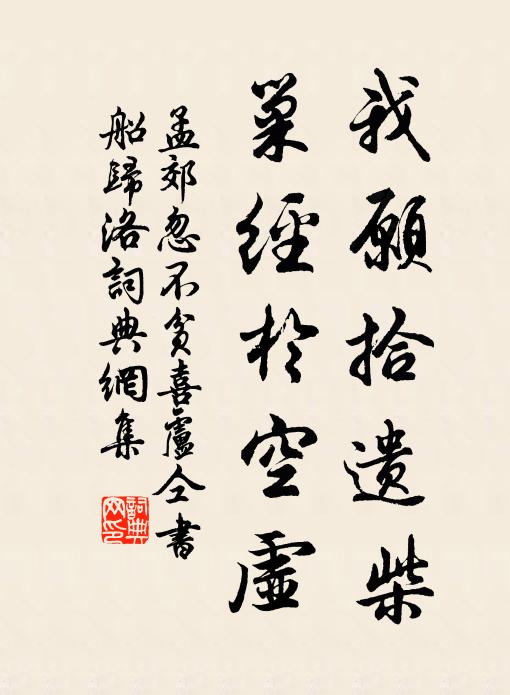 我願拾遺柴
巢經於空虛
孟郊忽不貧喜盧仝書
船歸洛詞典網集
詞典
网印